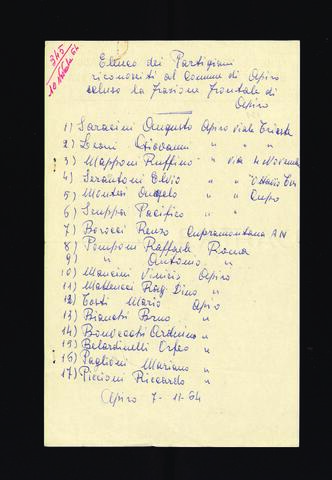 345
Elenco dei Partigiani
riconosciti al Comune di Apiro
escluso la frazione Frontale di
Apiro
1) Saracini Augusto Apiro Viale Trieste
2) Giovanni " " "
3) Mapponi Ruffino " Via 4 Novembre
4) Sarantoni Elvio "
5) Montesi Angelo "
6) Pacifico " "
7) Borocci Renzo Cupramontana AN
8) Pomponi Raffaele Roma
9) " Antonio "
10) Mancini Vinicio Apiro
11) Matteucci Rag. Dino "
12) Torti Mario Apiro
13) Bianchi Bruno "
14) Bonvecchi Arduino "
15) Belardinelli Orfeo "
16) Paglioni Mariano "
17) Piccioni Riccardo "
Apiro 7-11-64